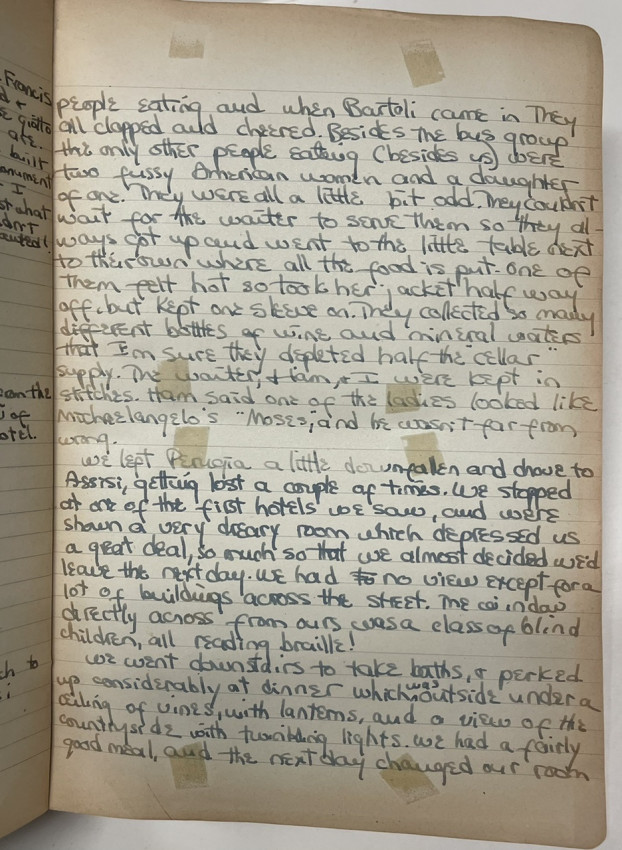 Francis
d &
Giotto
ate.
built
onument
I
st what
didn't
wanted!
on the
of
otel.
ch to
i
people eating and when Bartoli came in They
all clapped and cheered. Besides the bus group
the only other people eating (besides us) were
two fussy American women and a daughter
of one. They were all a little bit odd. They couldn't
wait for the waiter to serve them so they al-
ways got up and went to the little table next
to their own where all the food is put. One of
them felt hot so took her jacket half way
off, but kept one sleeve on. They collected so many
different bottles of wine and mineral waters
that I'm sure they depleted half the cellar
supply. The waiter, & Ham, & I were kept in
stitches. Ham said one of the ladies looked like
Michaelangelo's "Moses", and he wasn't far from
wrong.
We left Perugia a little downfallen and drove to
Assisi, getting lost a couple of times. We stopped
at one of the first hotels we saw, and were
shown a very dreary room which depressed us
a great deal, so much so that we almost decided we'd
leave the next day. We had no view except for a
lot of buildings across the street. The window
directly across from ours was a class of blind
children, all reading braille!
We went downstairs to take baths, & perked
up considerably at dinner which was outside under a
ceiling of vines, with lanterns, and a view of the
countryside with twinkling lights. We had a fairly
good meal, and the next day changed our room